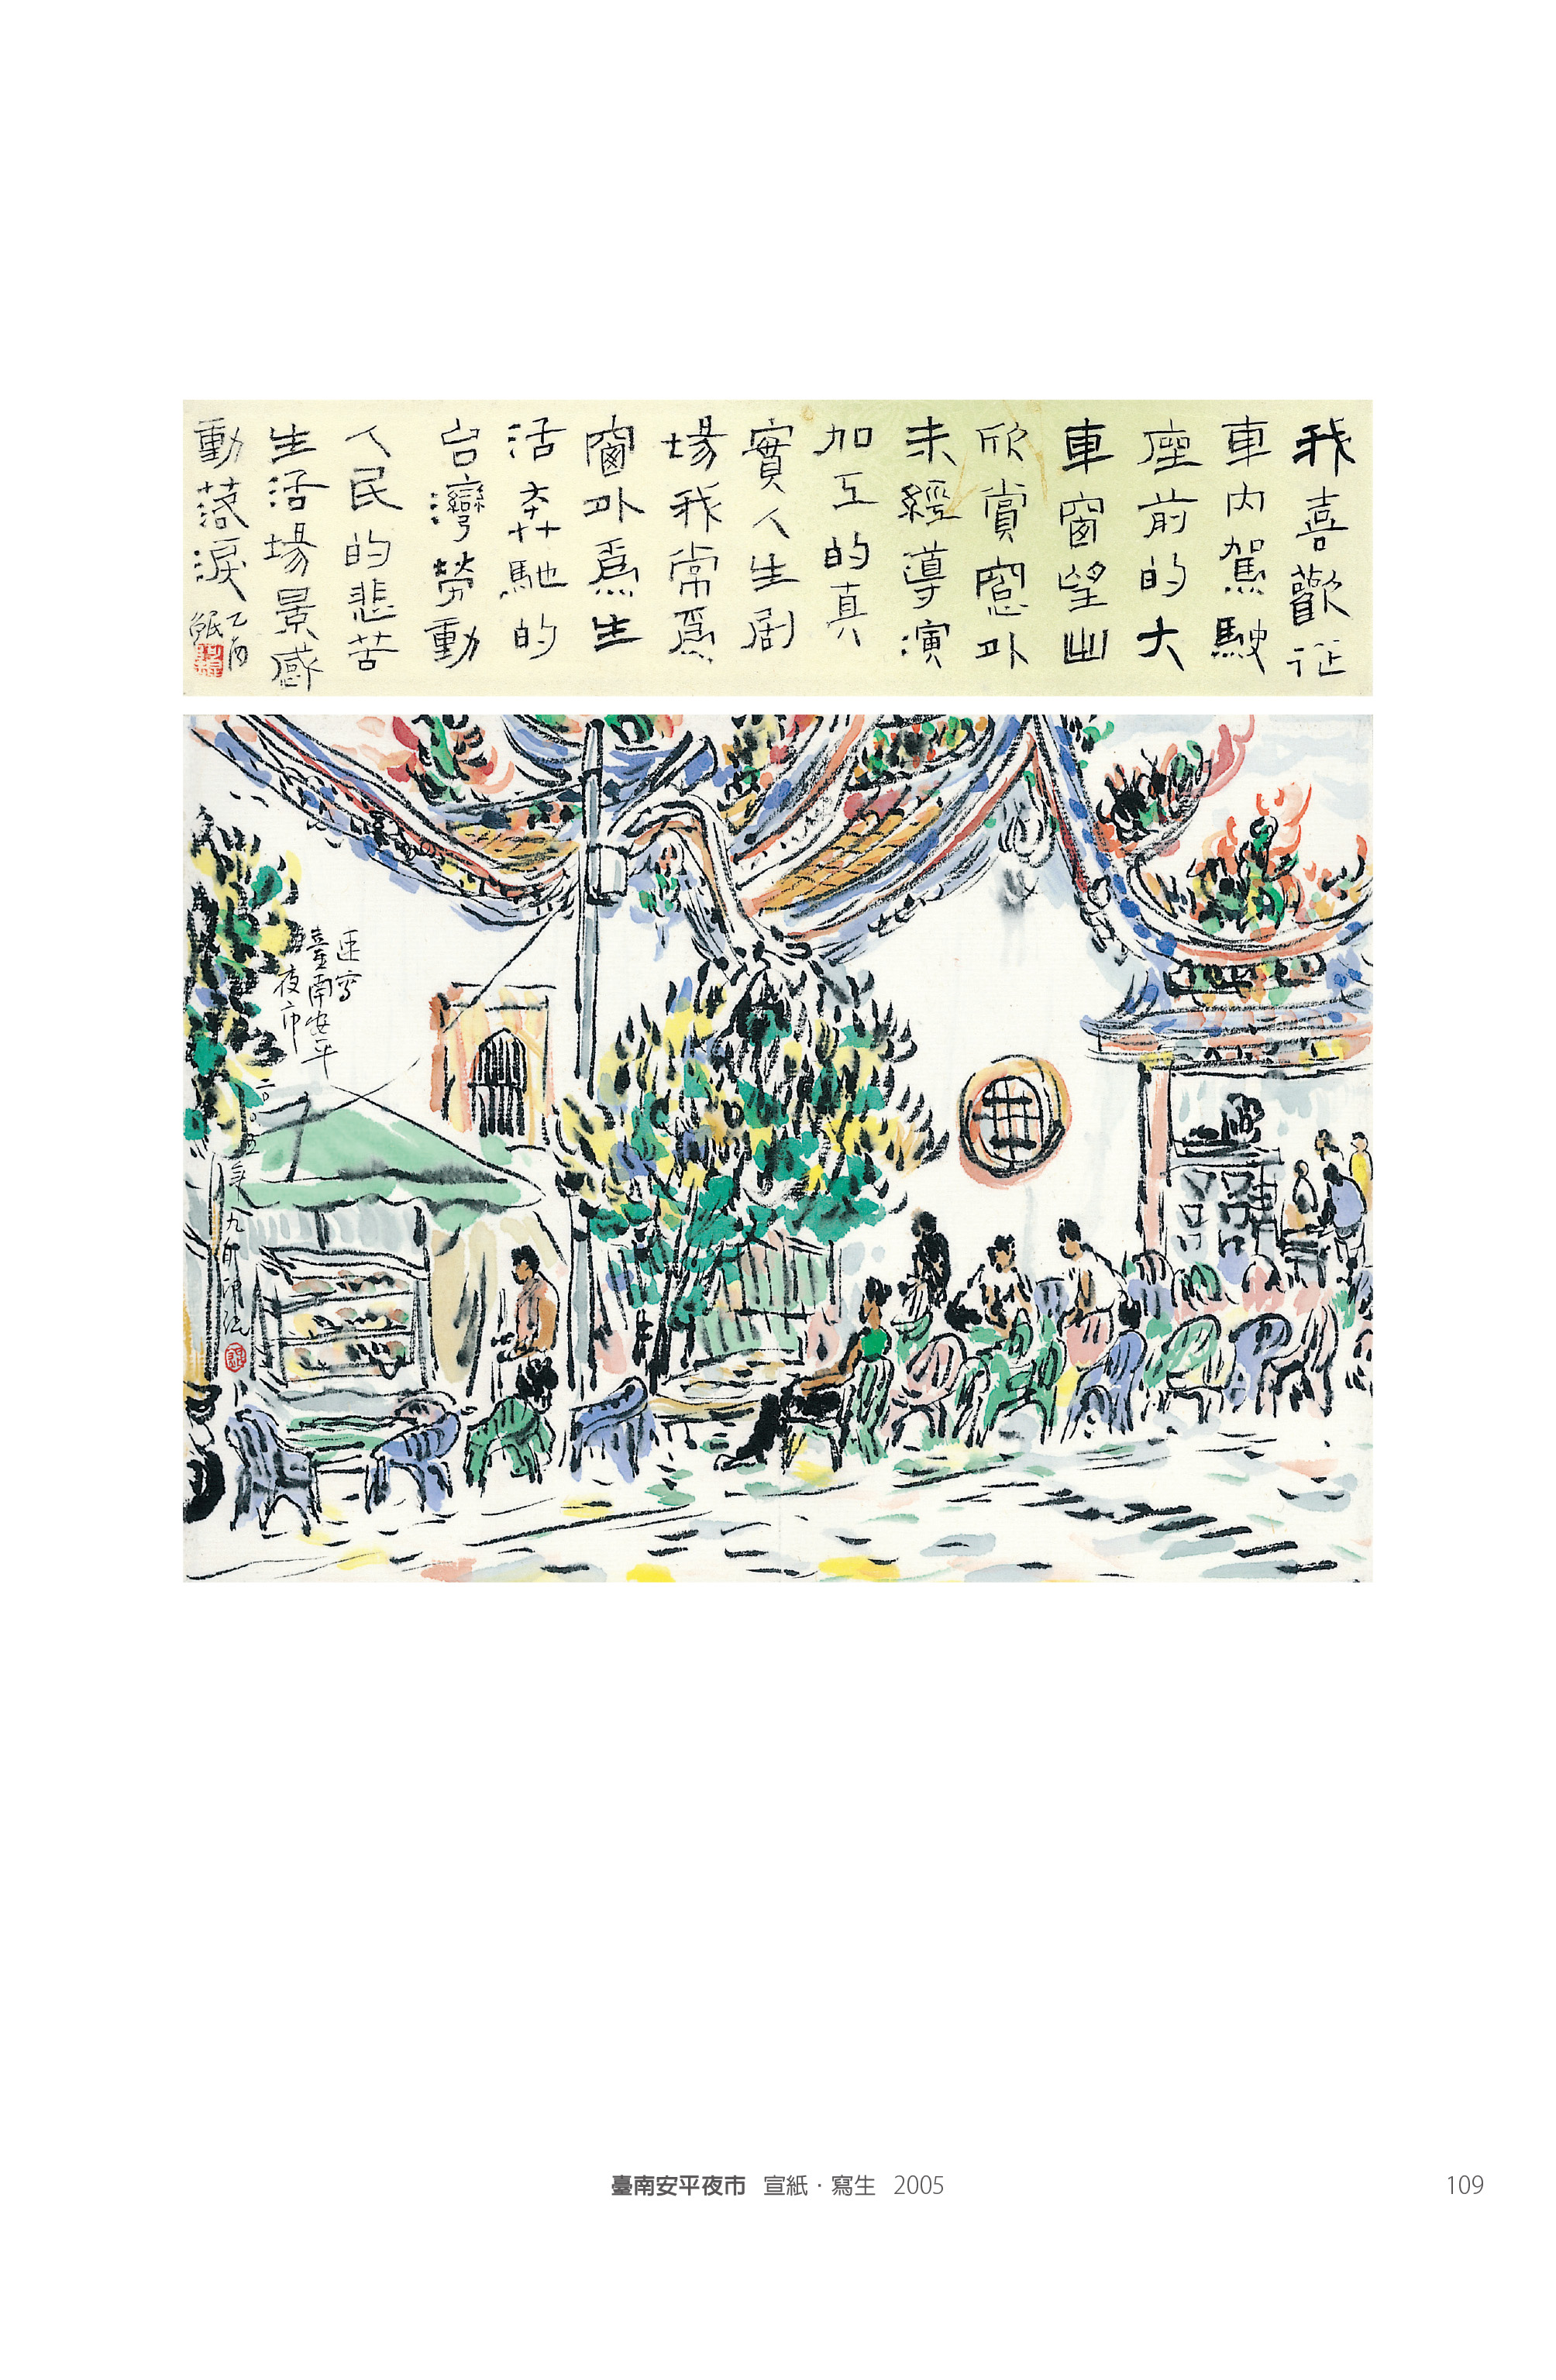 我喜歡從
車內駕駛
座前的大
車窗望出
欣賞窗外
未經導演
加工的真
實人生劇
場我常為
窗外為生
活奔馳的
台灣勞動
人民的悲苦
生活場景感
動落淚
乙酉
速寫
臺南安平
夜市
二〇〇五年九月
臺南安平夜市 宣紙·寫生 2005
109